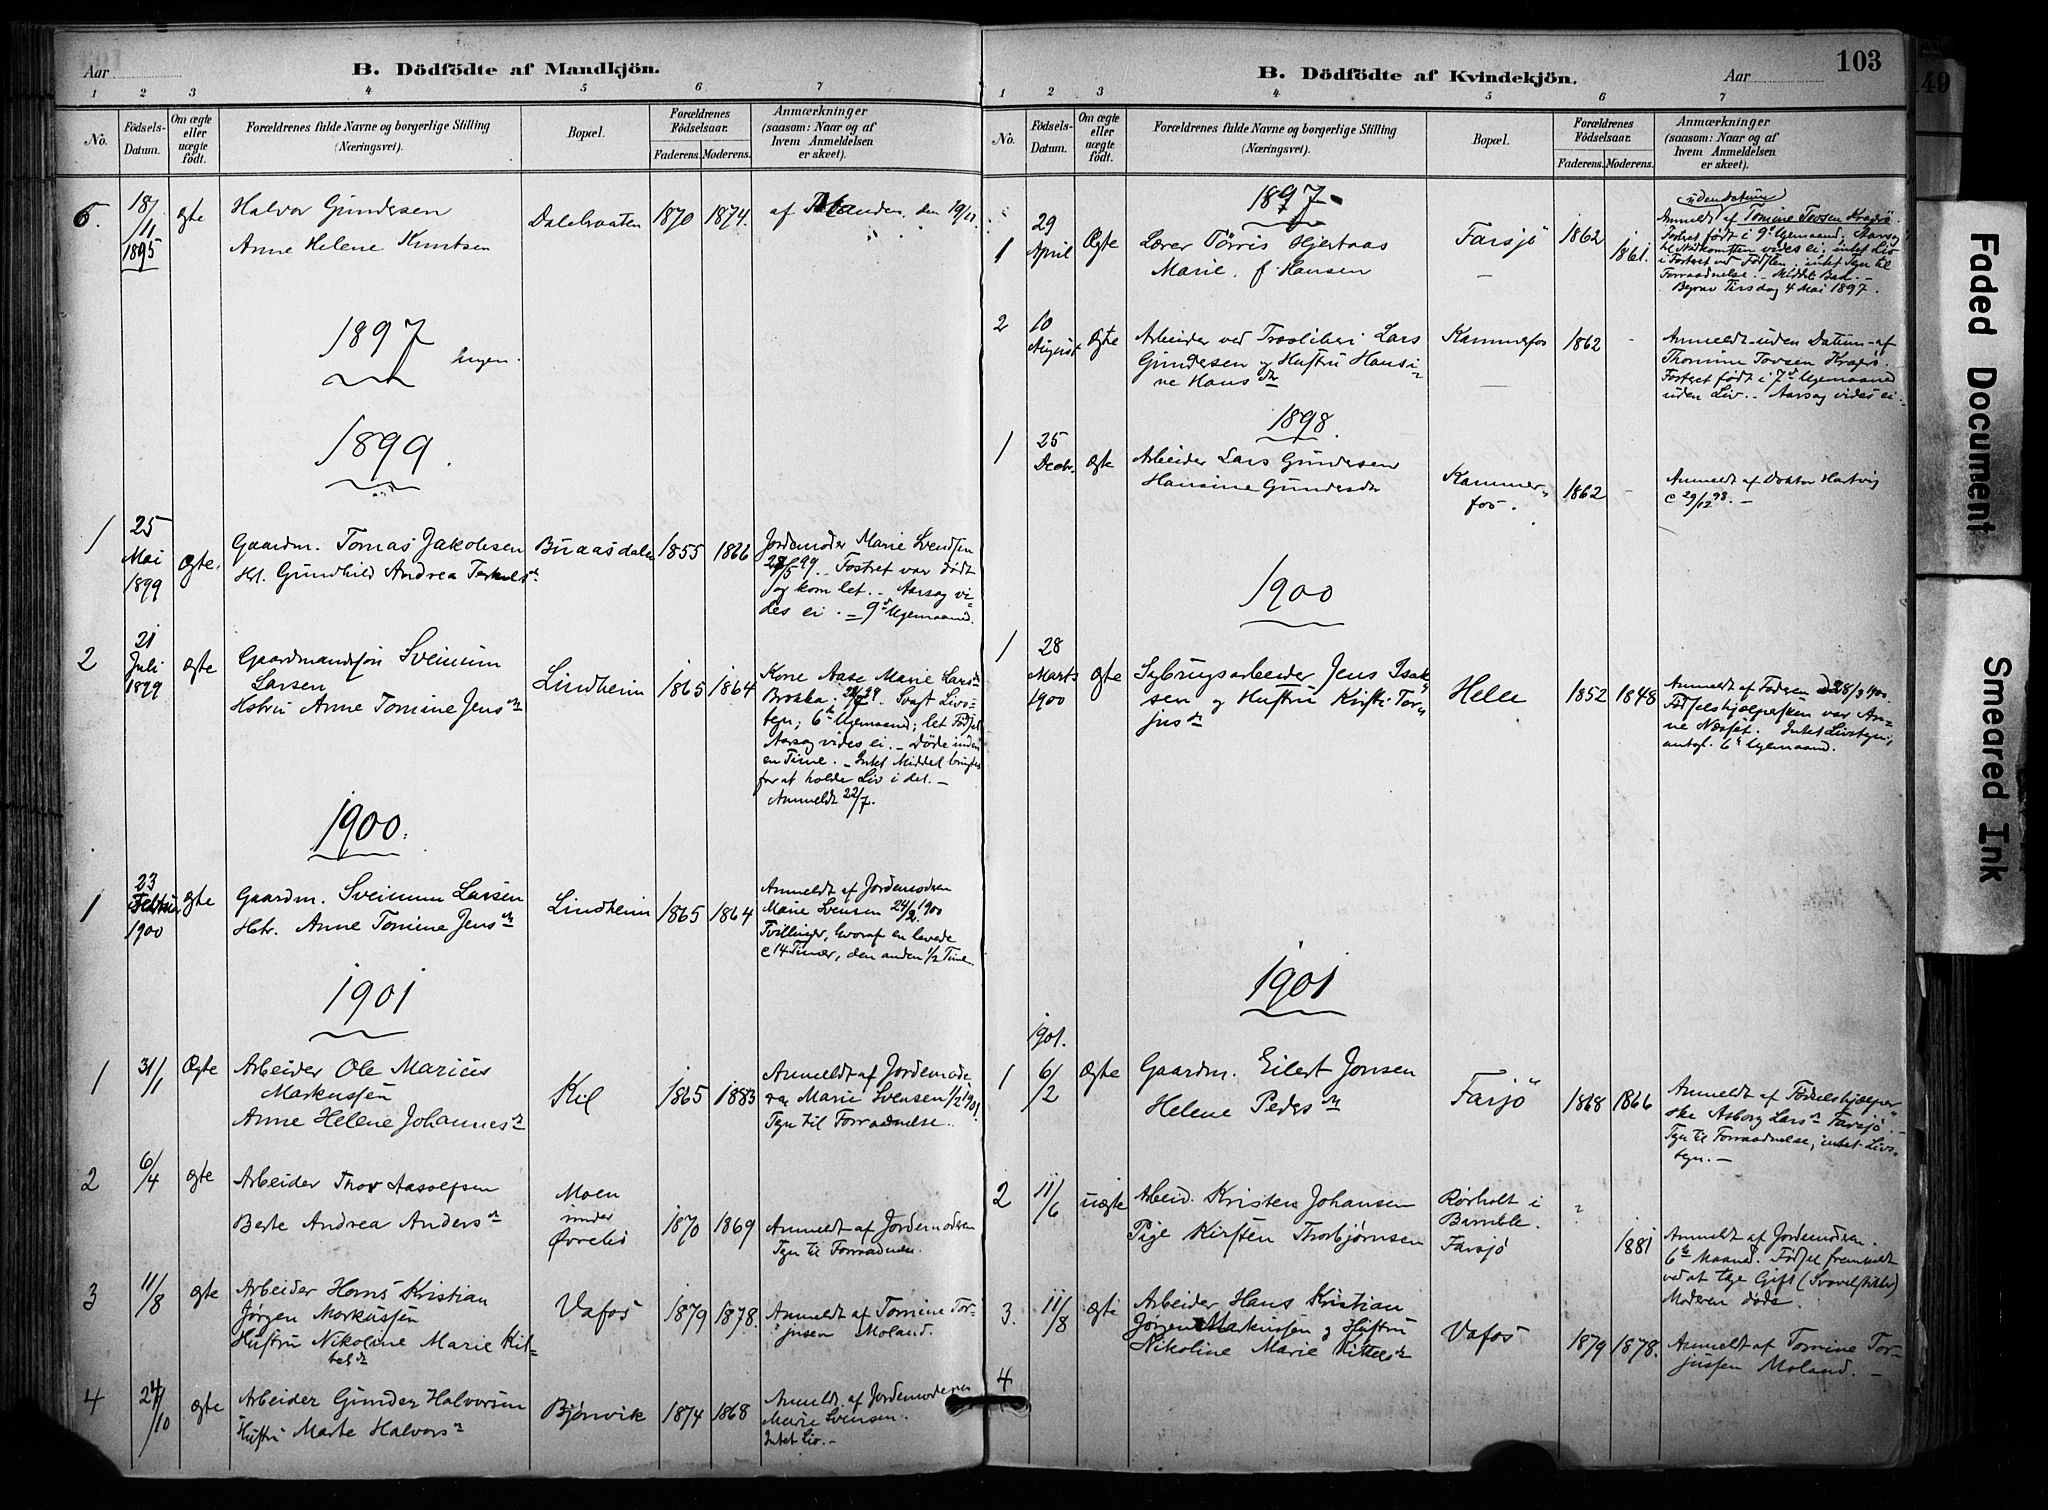 Aar
B. Dödfödte af Mandkjön.
1 2 3 4 5 6 7
No.
Födsels-
Datum.
Om ægte
eller
uægte
födt.
Forældrenes fulde Navne og borgerlige Stilling
(Næringsvei).
Bopæl.
Forældrenes
Födselsaar.
Faderens. Moderens.
Anmærkninger
(saasom: Naar og af
hvem Anmeldelsen
er skeet).
6 18/11 1895 ægte
Halvor Gundersen
Anne Helene Knutsen
Dalebraaten 1870 1874. af Manden, den 19/11.
1897
Ingen.
1899.
1 25 Mai 1899 Ægte.
Gaardm. Tomas Jakobsen
Ht. Gundhild Andrea Terkels
Buaasdalen 1855 1866
Jordemoder Marie Svendsen
28/5 99. Fostret var dødt
og kom let. – Aarsag vi-
des ei. – 9d Ugemaaned.
2 21 Juli 1899 ægte
Gaardmandssøn Sveinum
Larsen
Hstru Anne Tomine Jensdtr
Lindheim 1865 1864
Kone Aase Marie Larsdtr
Brokka. Svagt Livs-
tegn; 6te Ugemaaned; let Fødsel
Aarsag vides ei. – Døde inden
en Time. – Intet Middel brugtes
for at holde Liv i det. –
Anmeldt 22/7.
1900.
1 23 Februar 1900 ægte
Gaardm. Sveinum Larsen
Hstr. Anne Tomine Jensdtr
Lindheim 1865 1864
Anmeldt af Jordemoderen
Marie Svensen 24/2 1900
Tvillinger, hvoraf en levede
c 14 Timer, den anden 1/2 Time.
1901
1 31/1 Ægte
Arbeider Ole Marius
Markussen
Anne Helene Johannesdtr
Kil 1865 1883
Anmeldt af Jordemode
ren Marie Svensen 1/2 1901
Tegn til Forraadnelse.
2 6/4 ægte
Arbeider Thor Aasolfsen
Berte Andrea Andersdtr
Moen
under
Øvrebø
1870 1869
Anmeldt af Jordemoderen
Tegn til Forraadnen.
3 11/8 ægte
Arbeider Hans Kristian
Jørgen Markussen
Hustru Nikoline Marie Kit-
telsdtr
Vafos 1879 1878.
Anmeldt af Tomine Tor-
jusen Moland.
4 24/10 ægte
Arbeider Gunder Halvorsen
Hustru Marte Halvorsdtr
Bjørnvik 1874 1868
Anmeldt af Jordemoderen
Marie Svensen.
Intet Liv. –
B. Dödfödte af Kvindekjön.
Aar
103
1 2 3 4 5 6 7
No.
Födsels-
Datum.
Om ægte
eller
uægte
födt.
Forældrenes fulde Navne og borgerlige Stilling
(Næringsvei).
Bopæl.
Forældrenes
Födselsaar.
Faderens. Moderens.
Anmærkninger
(saasom: Naar og af
hvem Anmeldelsen
er skeet).
1897
1 29 April Ægte
Lærer Tørris Hjertaas
Marie. f. Hansen
Farsjø 1862 1861.
uden Datum
Anmeldt af Tomine Tovsen Kragerø.
Fostret født i 9d Ugemaaned, Aarsag
til Nedkomsten vides ei, intet Liv
i Fostret ved Fødslen, intet Tegn til
Forraadnelse. – Middel: Bad. –
Begrav. Tirsdag 4 Mai 1897.
2 10 August Ægte
Arbeider ved Træsliberi Lars
Gundersen og Hustru Hansi-
ne Hansdtr
Kammerfos 1862 -
Anmeldt – uden Datum – af
Thomine Tovsen Kragerø.
Fostret født i 7d Ugemaaned
uden Liv. – Aarsag vides ei. –
1898.
1 25 Decbr. ægte
Arbeider Lars Gundersen
Hansine Gundersdtr
Kammer-
fos.
1862 -
Anmeldt af Doktor Hartvig
c 29/12 98. –
1900
1 28 Marts 1900 ægte
Jens Isak-
sen og Hustru Kirsti Tor-
jusdtr
Helle 1852 1848
Anmeldt af Faderen 28/3 1900
Fødselshjælpersken var An-
ne Næsset. Intet Livstegn;
antagl. 6te Ugemaaned.
1901
1901.
1 6/2 Ægte
Gaardm. Eilert Jonsen
Helene Pedersdtr
Farsjø 1868 1866
Anmeldt af Fødselshjælper-
ske Asborg Larsdtr Farsjø. –
Tegn til Forraadnelse, intet Livs-
tegn. –
2 11/6 uægte
Arbeid. Kristen Johansen
Pige Kirsten Thorbjørnsen
Rørholt i
Bamble.
Farsjø
? 1881
Anmeldt af Jordemoderen.
6te Maaned. Fødsel fremmedt
ved at tage Gift (Svovelstikker)
Moderen døde.
3. 11/8 ægte
Arbeider Hans Kristian
Jørgen Markussen og Hustru
Nikoline Marie Kittelsdtr
Vafos 1879 1878.
Anmeldt af Tomine Tor-
jussen Moland. –
4
49
Faded Document
Smeared Ink